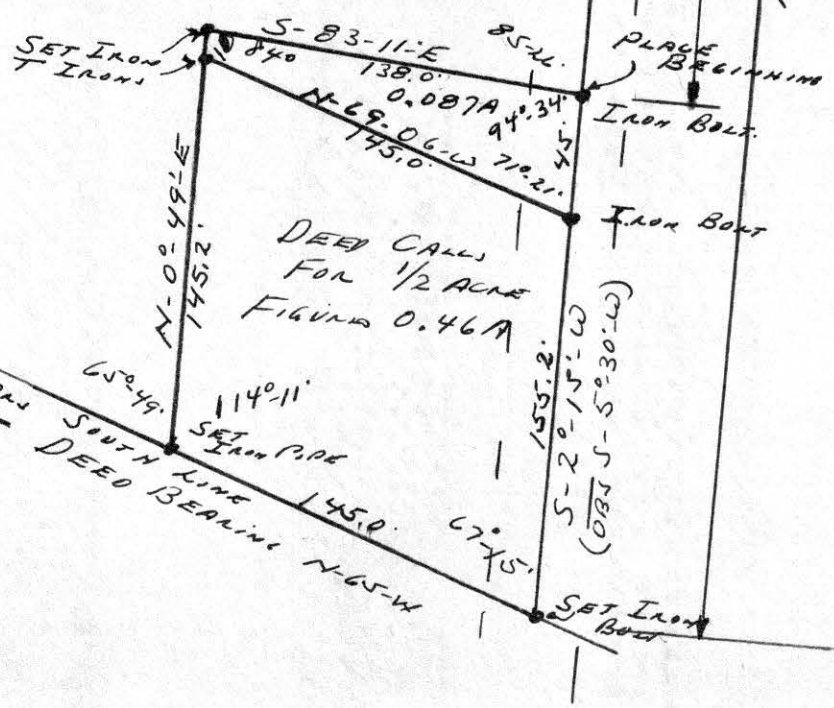 S-83-11'-E
138.0'
0.087A
85-26'
94°-34'
PLACE
BEGINNING
IRON BOLT.
SET IRON
T IRONS
84°
N-69-06-W
145.0'
71°-21'
45'
IRON BOLT
N-0°-49'-E
145.2'
DEED CALLS
FOR 1/2 ACRE
FIGURES 0.46A
155.2'
S-2°-15'-W
(OBS S-5°-30'-W)
65°-49'
114°-11'
SET
IRON PIPE
SOUTH LINE
DEED BEARING N-65-W
145.0'
SET IRON
BOLT